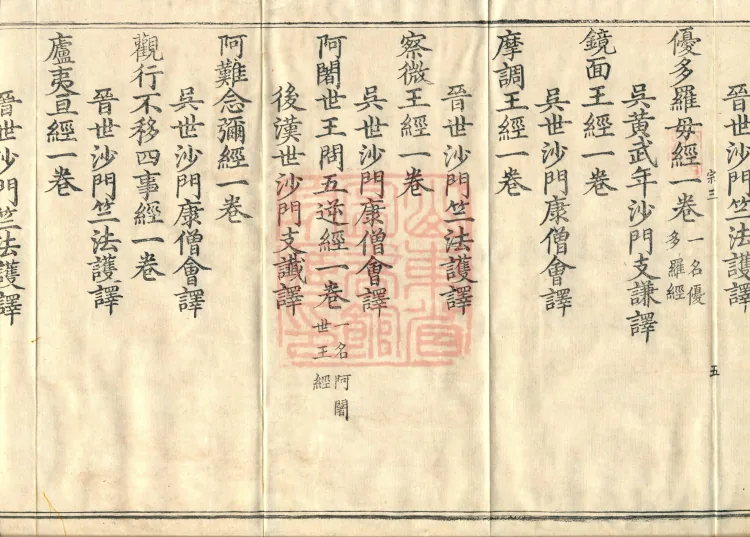 晉世沙門竺法護譯
宗三 五
優多羅毋經一卷 一名優多羅經
吳黃武年沙門支謙譯
鏡面王經一卷
吳世沙門康僧會譯
摩調王經一卷
晉世沙門竺法護譯
察微王經一卷
吳世沙門康僧會譯
阿闍世王問五逆經一卷 一名阿闍世王經
後漢世沙門支讖譯
阿難念彌經一卷
吳世沙門康僧會譯
觀行不移四事經一卷
晉世沙門竺法護譯
盧夷亘經一卷
晉世沙門竺法護譯